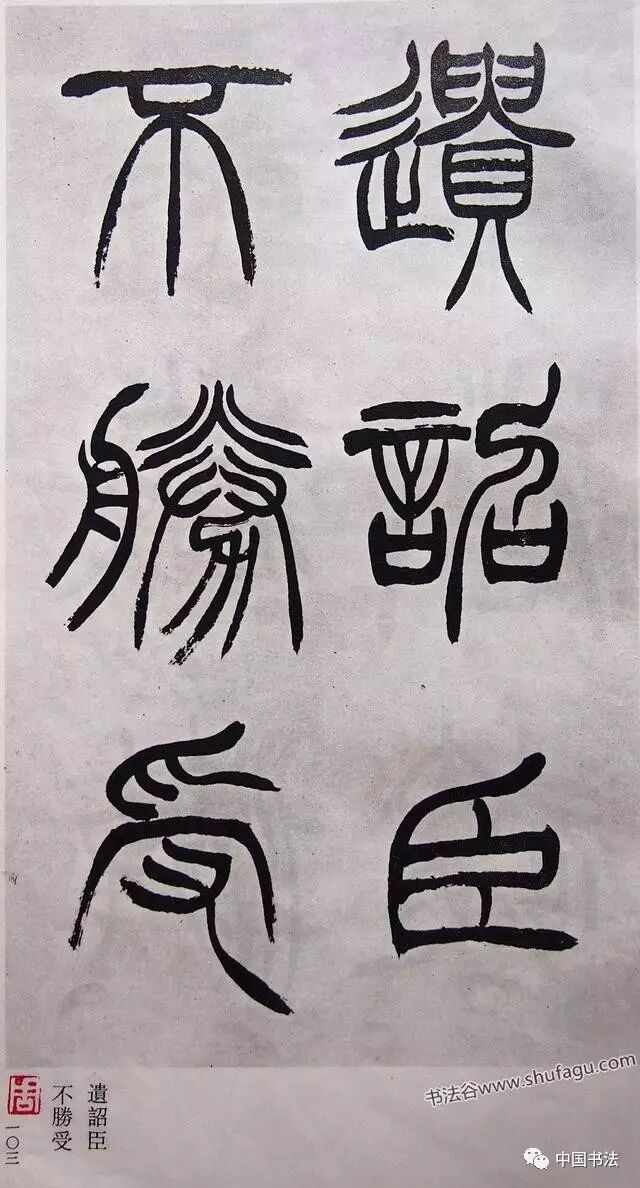 遺詔臣
不勝受
遺詔臣
不勝受
周
一〇三
书法谷www.shufagu.com
中国书法